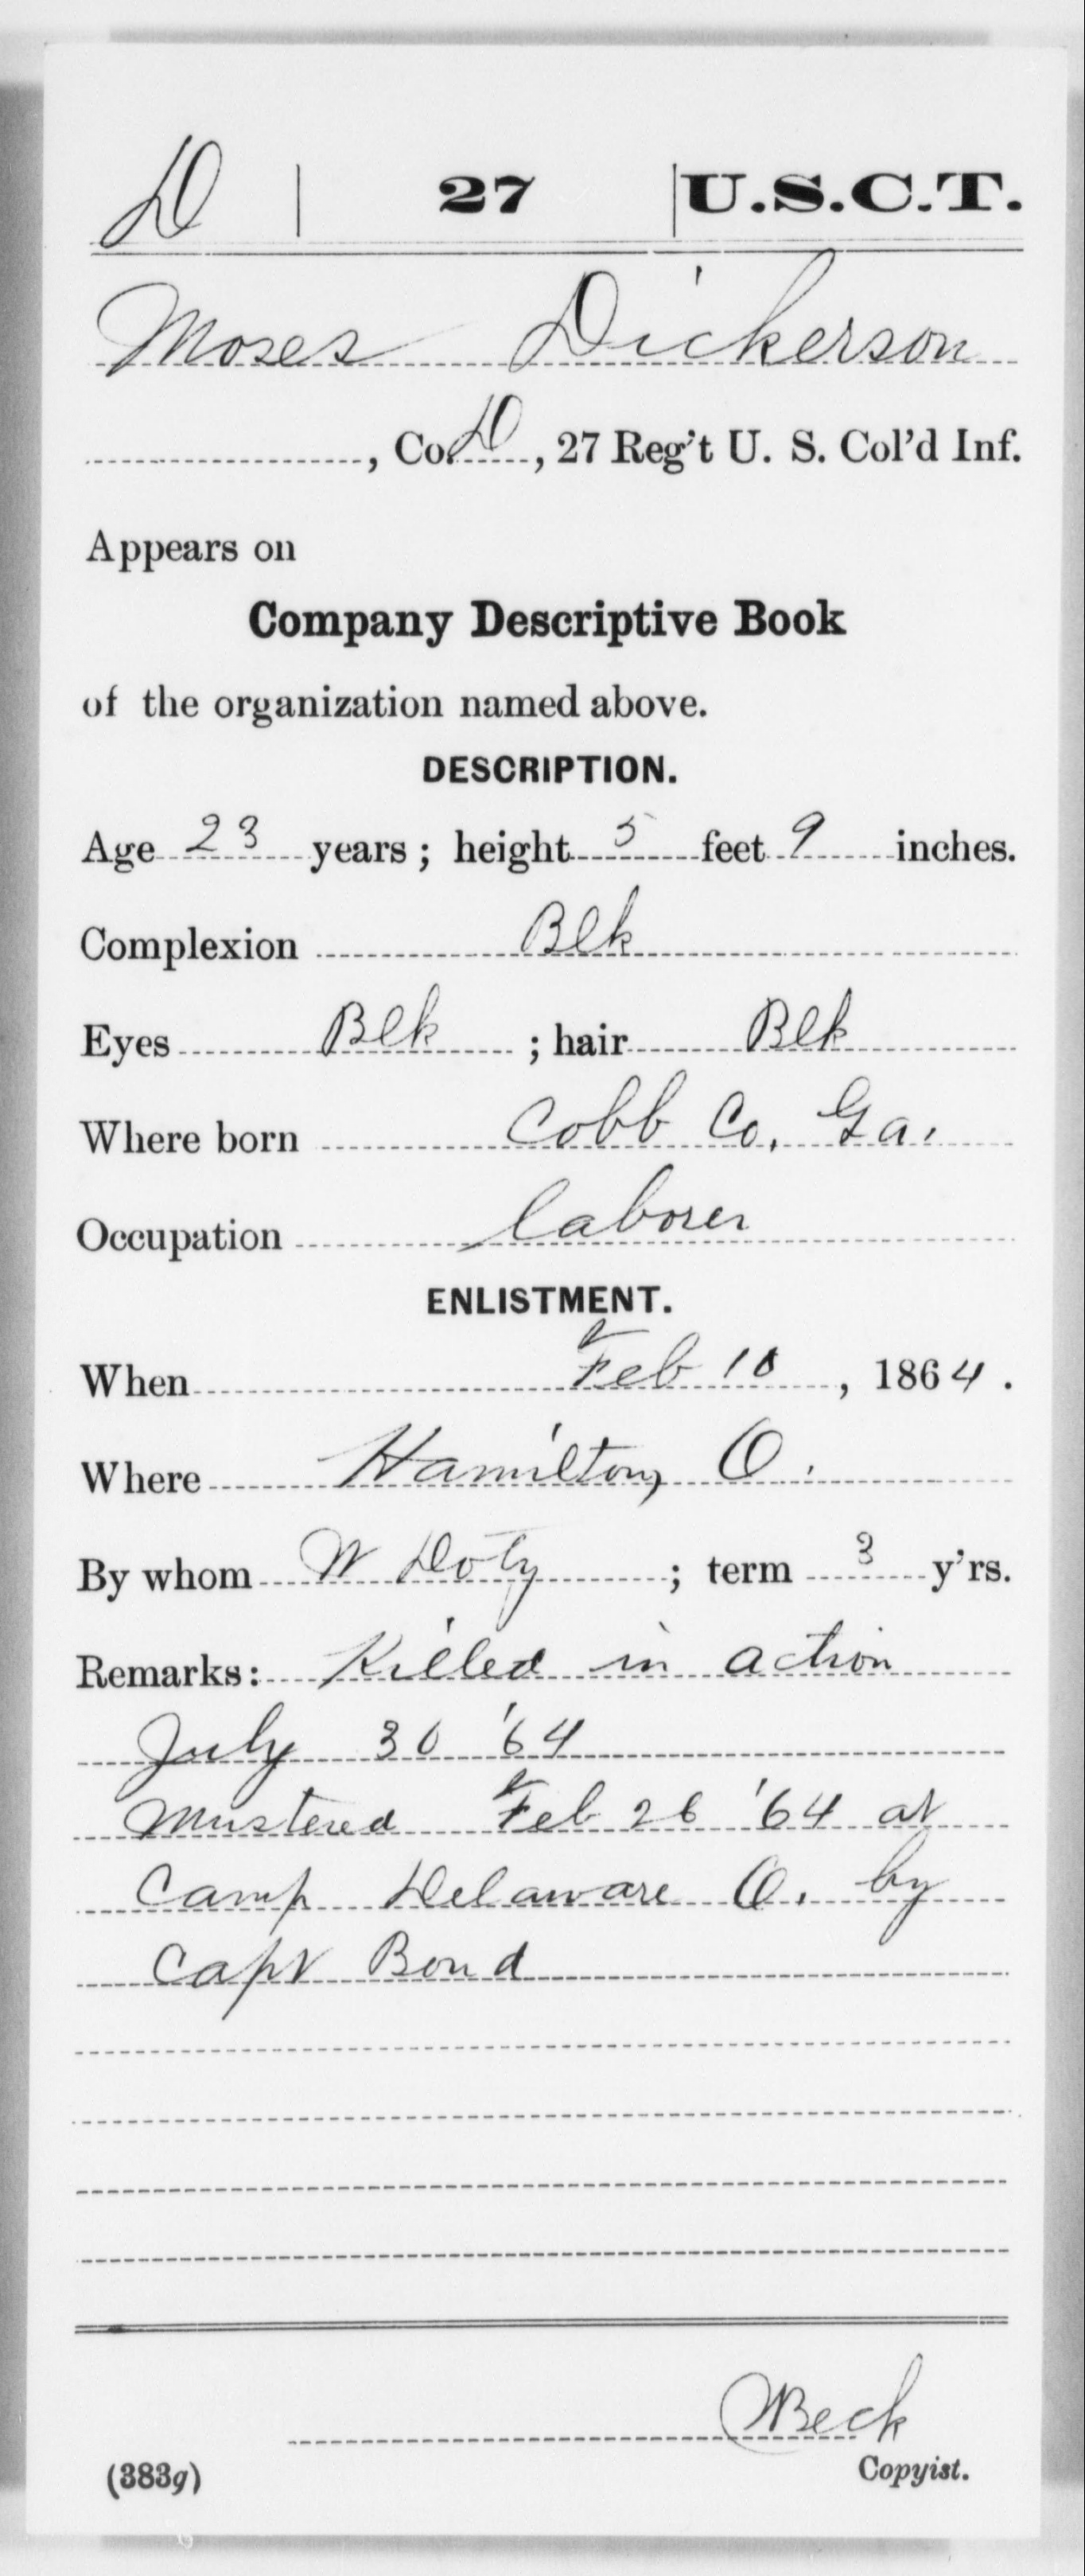 D | 27 | U.S.C.T.
Moses Dickerson
, Co. D, 27 Reg't U. S. Col'd Inf.
Appears on
Company Descriptive Book
of the organization named above.
DESCRIPTION.
Age 23 years; height 5 feet 9 inches.
Complexion Blk
Eyes Blk ; hair Blk
Where born Cobb Co, Ga.
Occupation laborer
ENLISTMENT.
When Feb 10, 1864.
Where Hamilton, O.
By whom W Doty ; term 3 y'rs.
Remarks: Killed in action
July 30 '64
Mustered Feb 26 '64 at
Camp Delaware O. by
Capt Bond
Beck
(383g) Copyist.